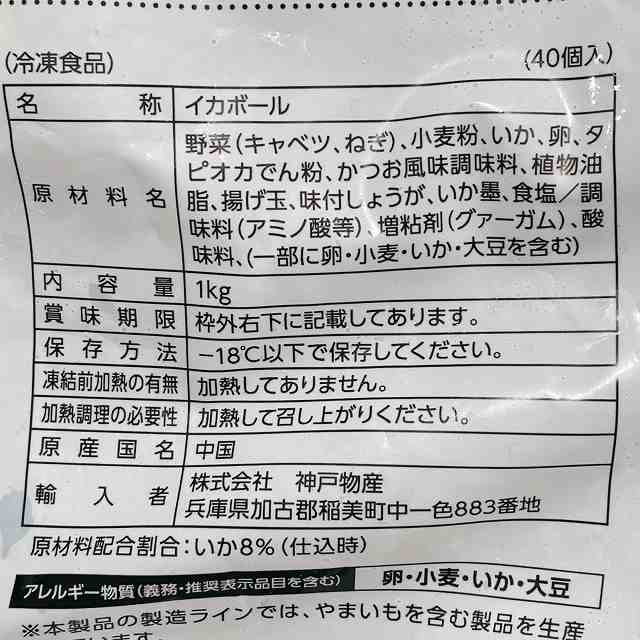 (冷凍食品)
(40個入)
名称 イカボール
原材料名 野菜(キャベツ、ねぎ)、小麦粉、いか、卵、タ
ピオカでん粉、かつお風味調味料、植物油
脂、揚げ玉、味付しょうが、いか墨、食塩／調
味料(アミノ酸等)、増粘剤(グァーガム)、酸
味料、(一部に卵・小麦・いか・大豆を含む)
内容量 1kg
賞味期限 枠外右下に記載してあります。
保存方法 −18℃以下で保存してください。
凍結前加熱の有無 加熱してありません。
加熱調理の必要性 加熱して召し上がりください。
原産国名 中国
輸入者 株式会社 神戸物産
兵庫県加古郡稲美町中一色883番地
原材料配合割合:いか8%(仕込時)
アレルギー物質(義務・推奨表示品目を含む) 卵・小麦・いか・大豆
※本製品の製造ラインでは、やまいもを含む製品を生産